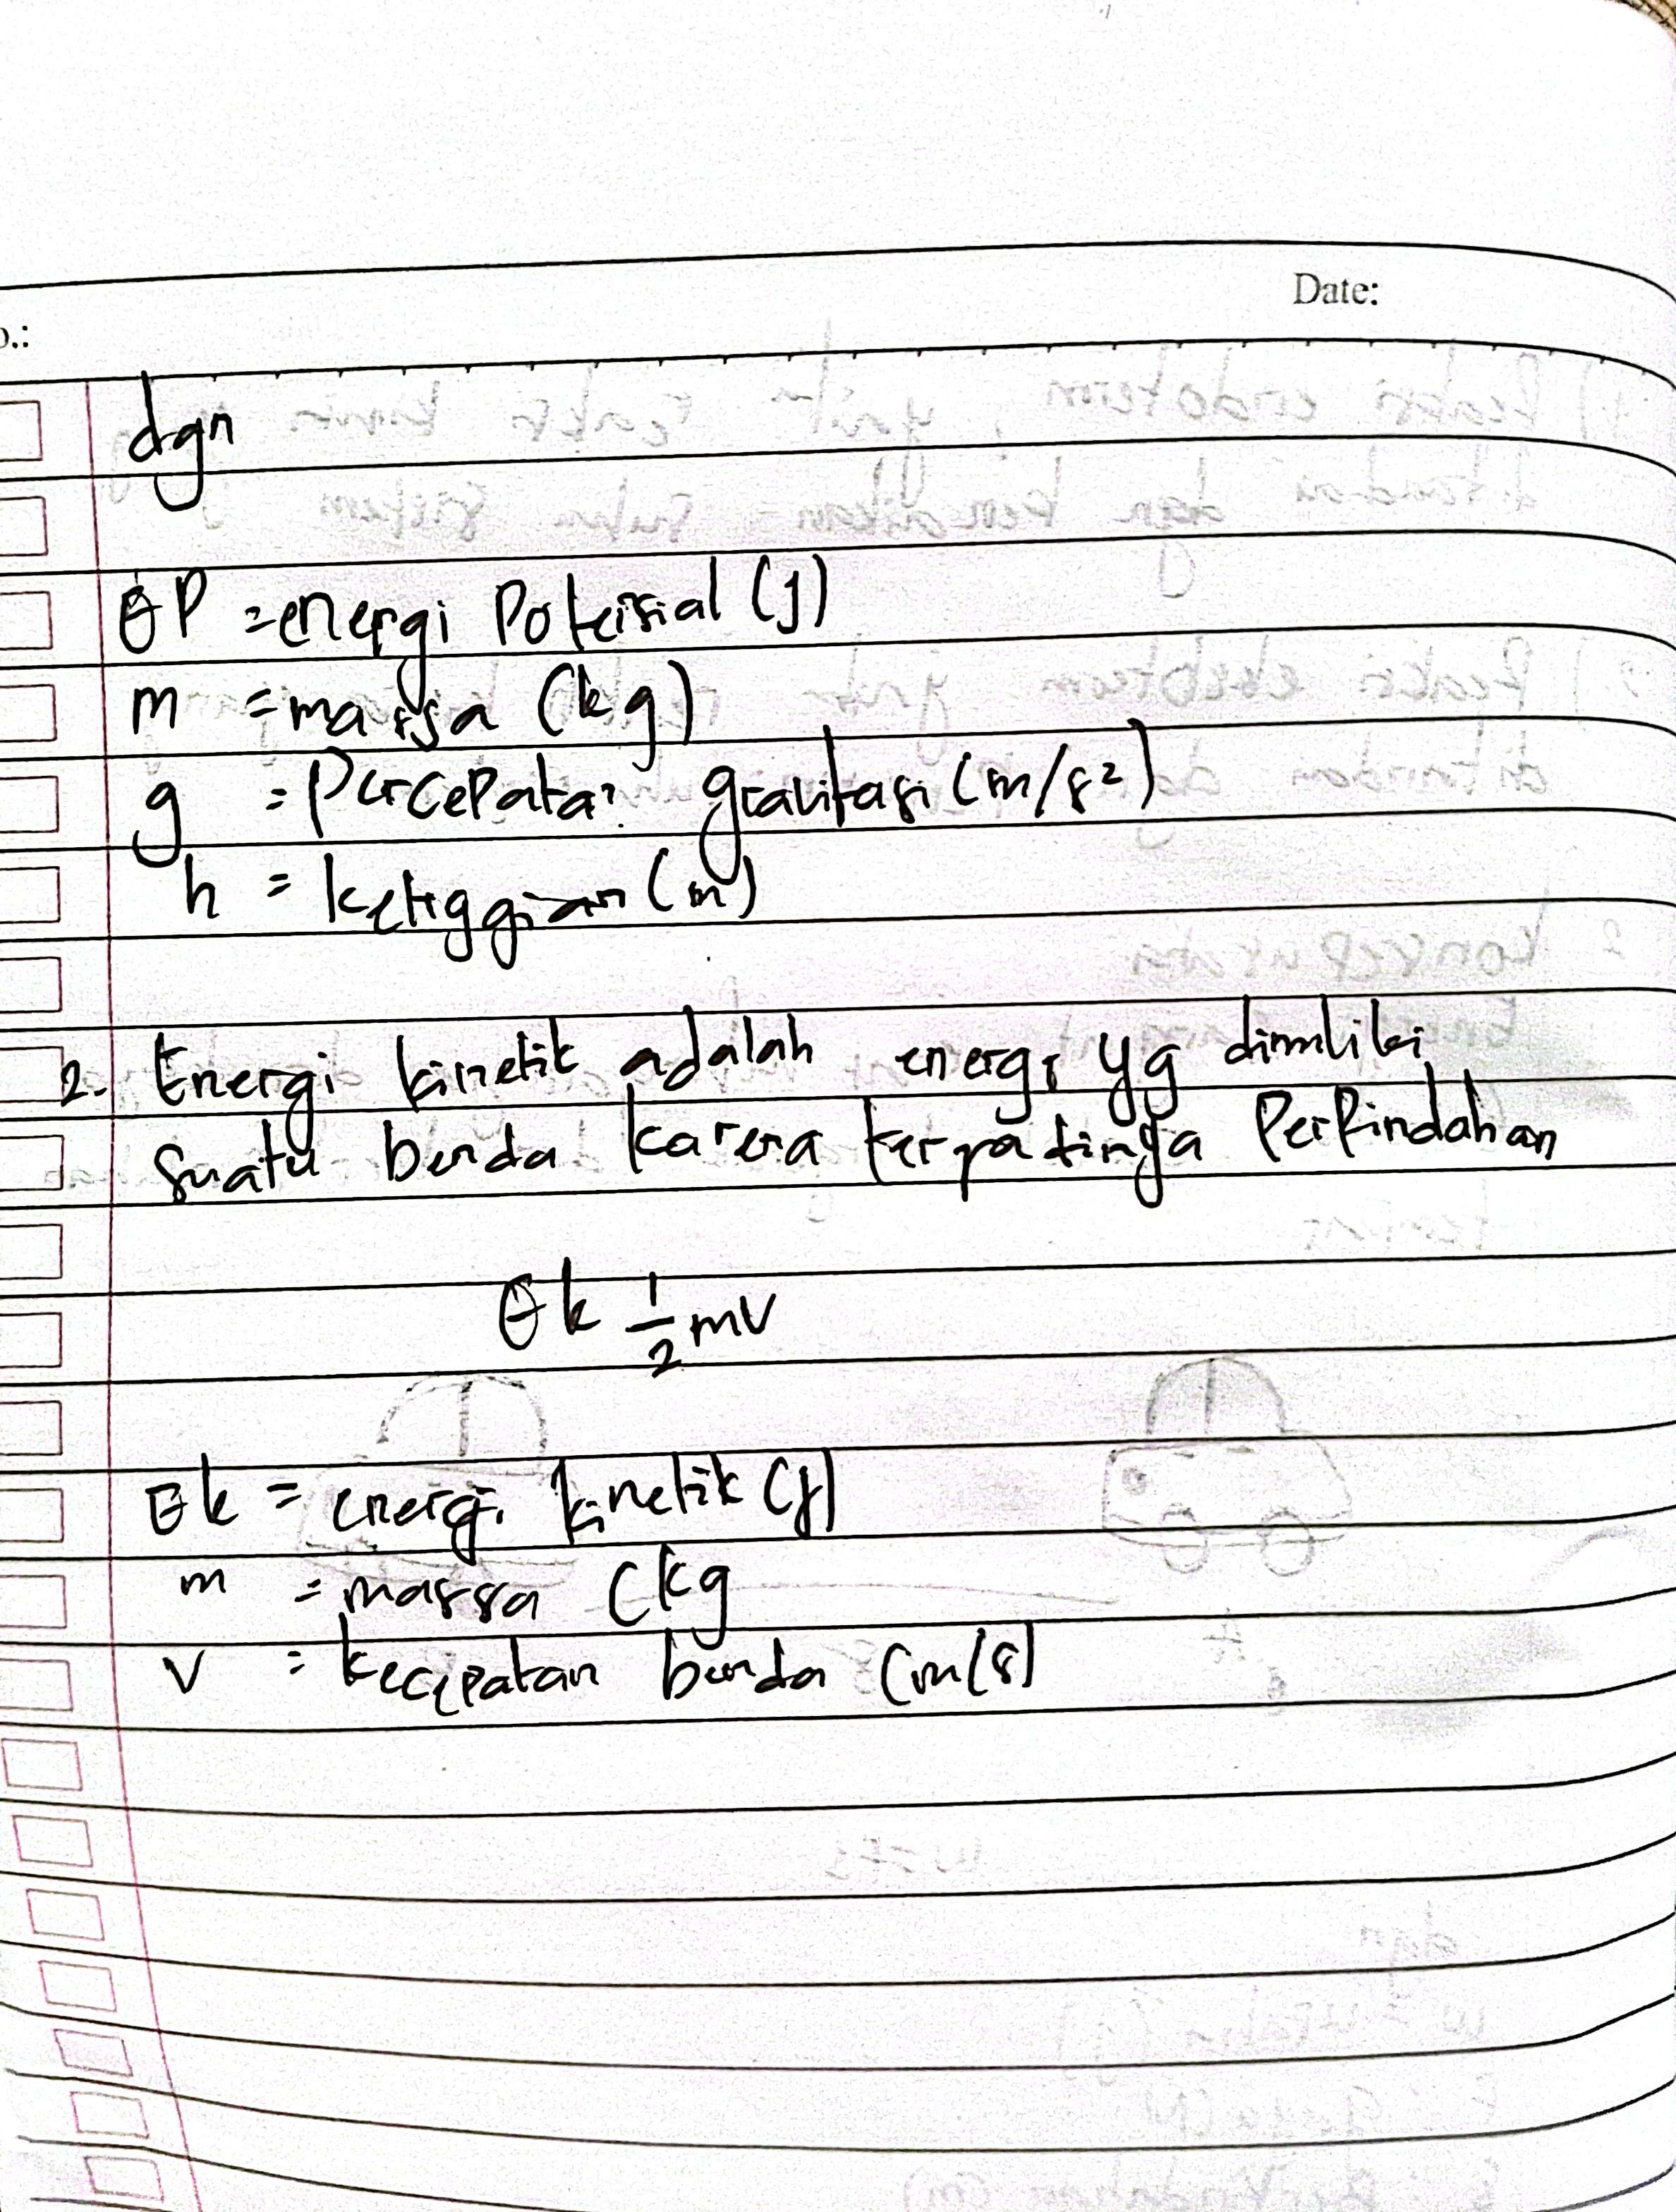 Date:
o.:
dgn
EP = energi Potensial (J)
m = massa (kg)
g = Percepatan gravitasi (m/s²)
h = ketiggian (m)
2. Energi kinetik adalah energi yg dimiliki
suatu benda karena terjadinya Perpindahan
Ek 1/2 mv
Ek = energi kinetik (J)
m = massa (kg
v = kecepatan benda (m/s)